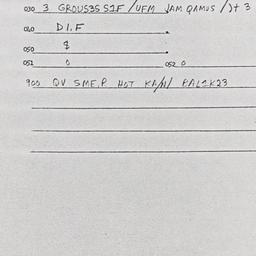 030 3 GROUS3S S1F / UFM JAM QAMUS / J+ 3
040 D1.F
050 8
051 0 052 0
900 QV SME.P HOT KAM/